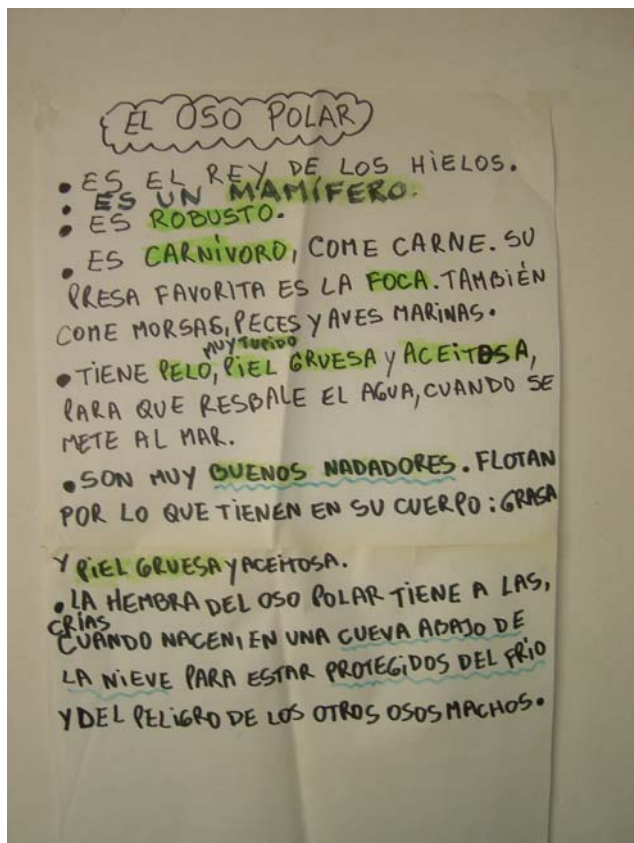 EL OSO POLAR
• ES EL REY DE LOS HIELOS.
• ES UN MAMÍFERO.
• ES ROBUSTO.
• ES CARNÍVORO, COME CARNE. SU
PRESA FAVORITA ES LA FOCA. TAMBIÉN
COME MORSAS, PECES Y AVES MARINAS.
MUY TUPIDO
• TIENE PELO, PIEL GRUESA Y ACEITOSA,
PARA QUE RESBALE EL AGUA, CUANDO SE
METE AL MAR.
• SON MUY BUENOS NADADORES. FLOTAN
POR LO QUE TIENEN EN SU CUERPO: GRASA
Y PIEL GRUESA Y ACEITOSA.
• LA HEMBRA DEL OSO POLAR TIENE A LAS,
CRÍAS
CUANDO NACEN, EN UNA CUEVA ABAJO DE
LA NIEVE PARA ESTAR PROTEGIDOS DEL FRIO
Y DEL PELIGRO DE LOS OTROS OSOS MACHOS.